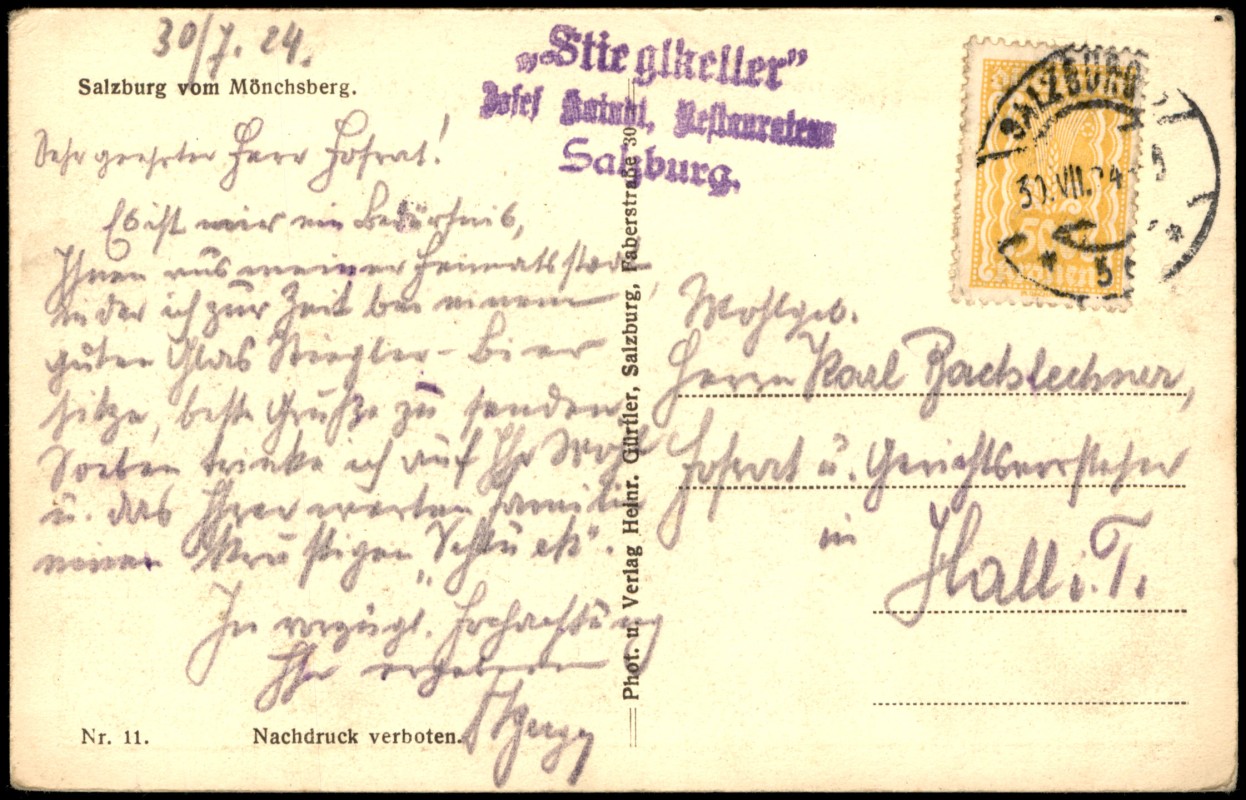 30/7. 24.
Salzburg vom Mönchsberg.
„Stieglkeller”
Josef Restaurateur
Salzburg.
SALZBURG
30.VII.24
500
Kronen
Sehr geehrter Herr Hofrat!
Es ist mir ein Bedürfnis,
Ihnen aus meiner Heimatsstadt,
in der ich zur Zeit bei einem
guten Glas Stiegler-Bier
sitze, beste Grüße zu senden.
Soeben trinke ich auf Ihr Wohl
u. das Ihrer werten Familie
einen kräftigen „Schluck“.
In vorzügl. Hochachtung
Ihr ergebener
Wohlgeb.
Herrn Karl Bachlechner,
Hofrat u. Gerichtsvorsteher
in
Hall i. T.
Phot. u. Verlag Heinr. Gürtler, Salzburg, Faberstraße 30
Nr. 11.
Nachdruck verboten.